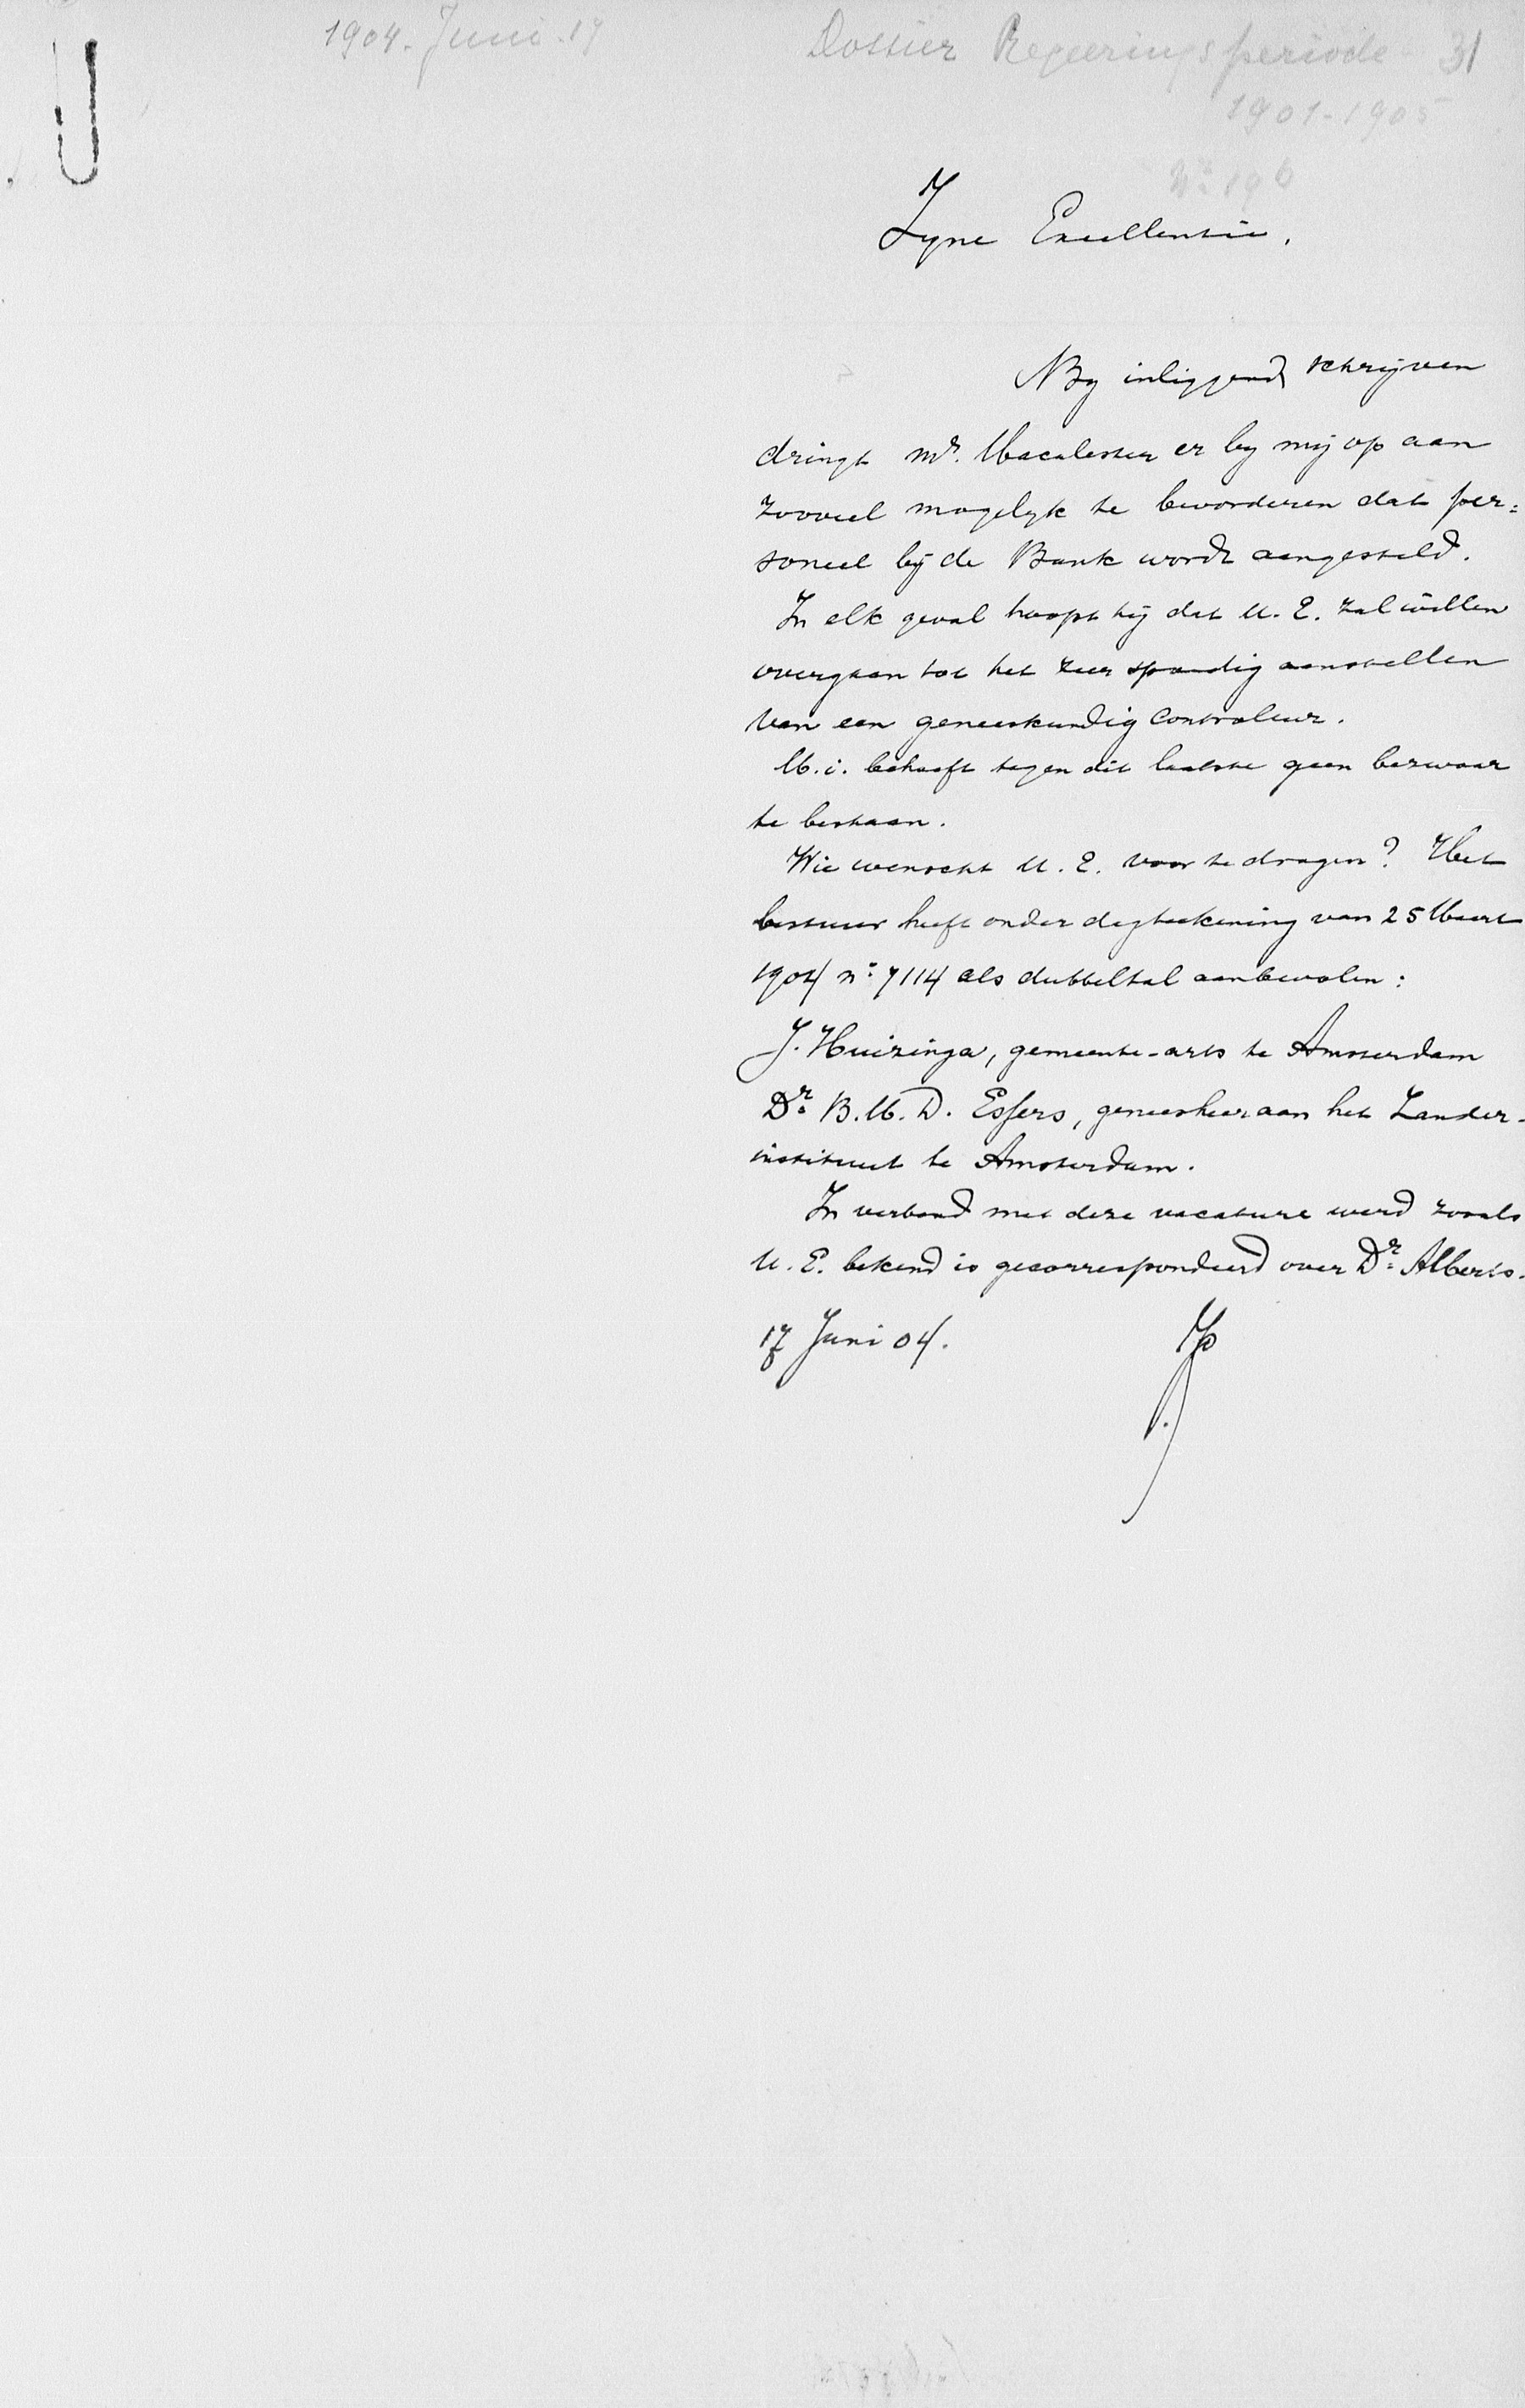 1904. Juni. 17
Dossier Regeeringsperiode 31
1901-1905
No 196
Zyne Excellentie.
By inliggend schrijven
dringt Mr. Macalester er by mij op aan
zooveel mogelyk te bevorderen dat per=
soneel bij de Bank wordt aangesteld.
In elk geval hoopt hij dat U. E. zal willen
overgaan tot het zeer spoedig aanstellen
van een geneeskundig Controleur.
M. i. behoeft tegen dit laatste geen bezwaar
te bestaan.
Wie wenscht U. E. voor te dragen? Het
bestuur heeft onder dagteekening van 25 Maart
1904 no 7114 als dubbeltal aanbevolen:
J. Huizinga, gemeente-arts te Amsterdam
Dr. B. M. D. Essers, geneesheer aan het Zander-
instituut te Amsterdam.
In verband met deze vacature werd zooals
U. E. bekend is gecorrespondeerd over Dr. Alberts.
17 Juni 04.